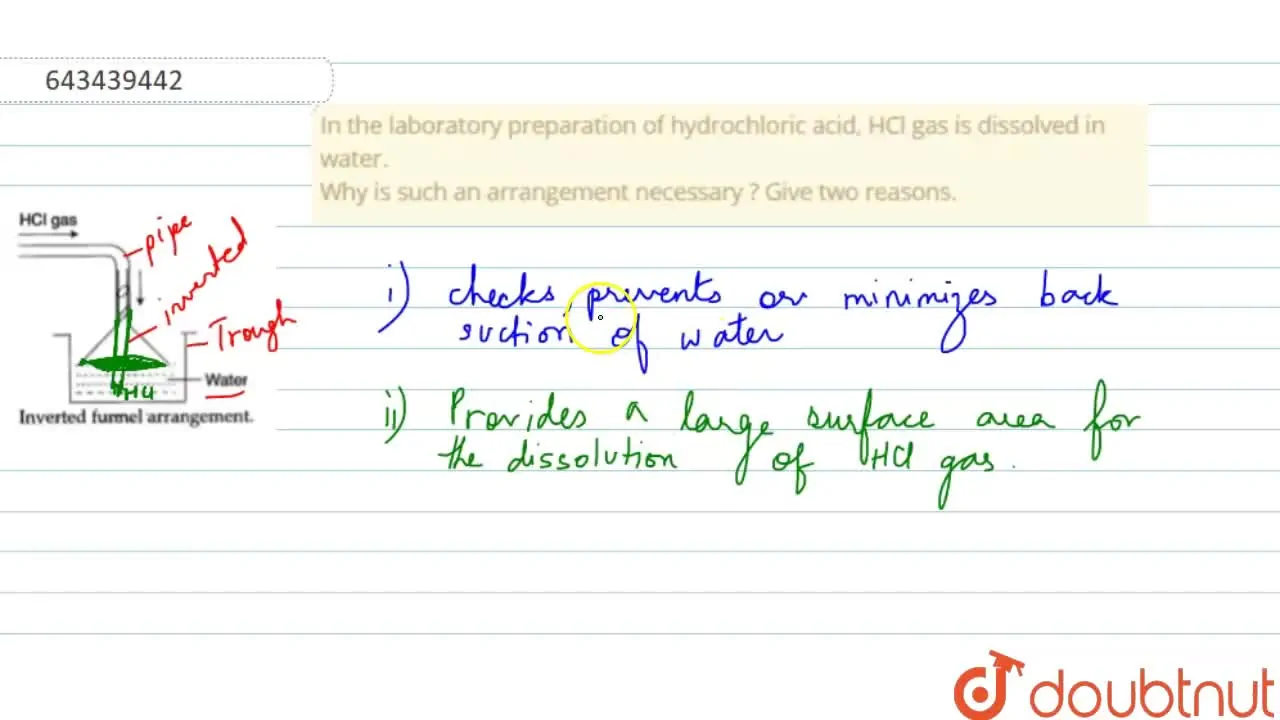 643439442
In the laboratory preparation of hydrochloric acid, HCl gas is dissolved in
water.
Why is such an arrangement necessary ? Give two reasons.
HCl gas
pipe
inverted
Trough
Water
HCl
Inverted funnel arrangement.
i) checks, prevents or minimizes back
suction of water
ii) Provides a large surface area for
the dissolution of HCl gas.
doubtnut